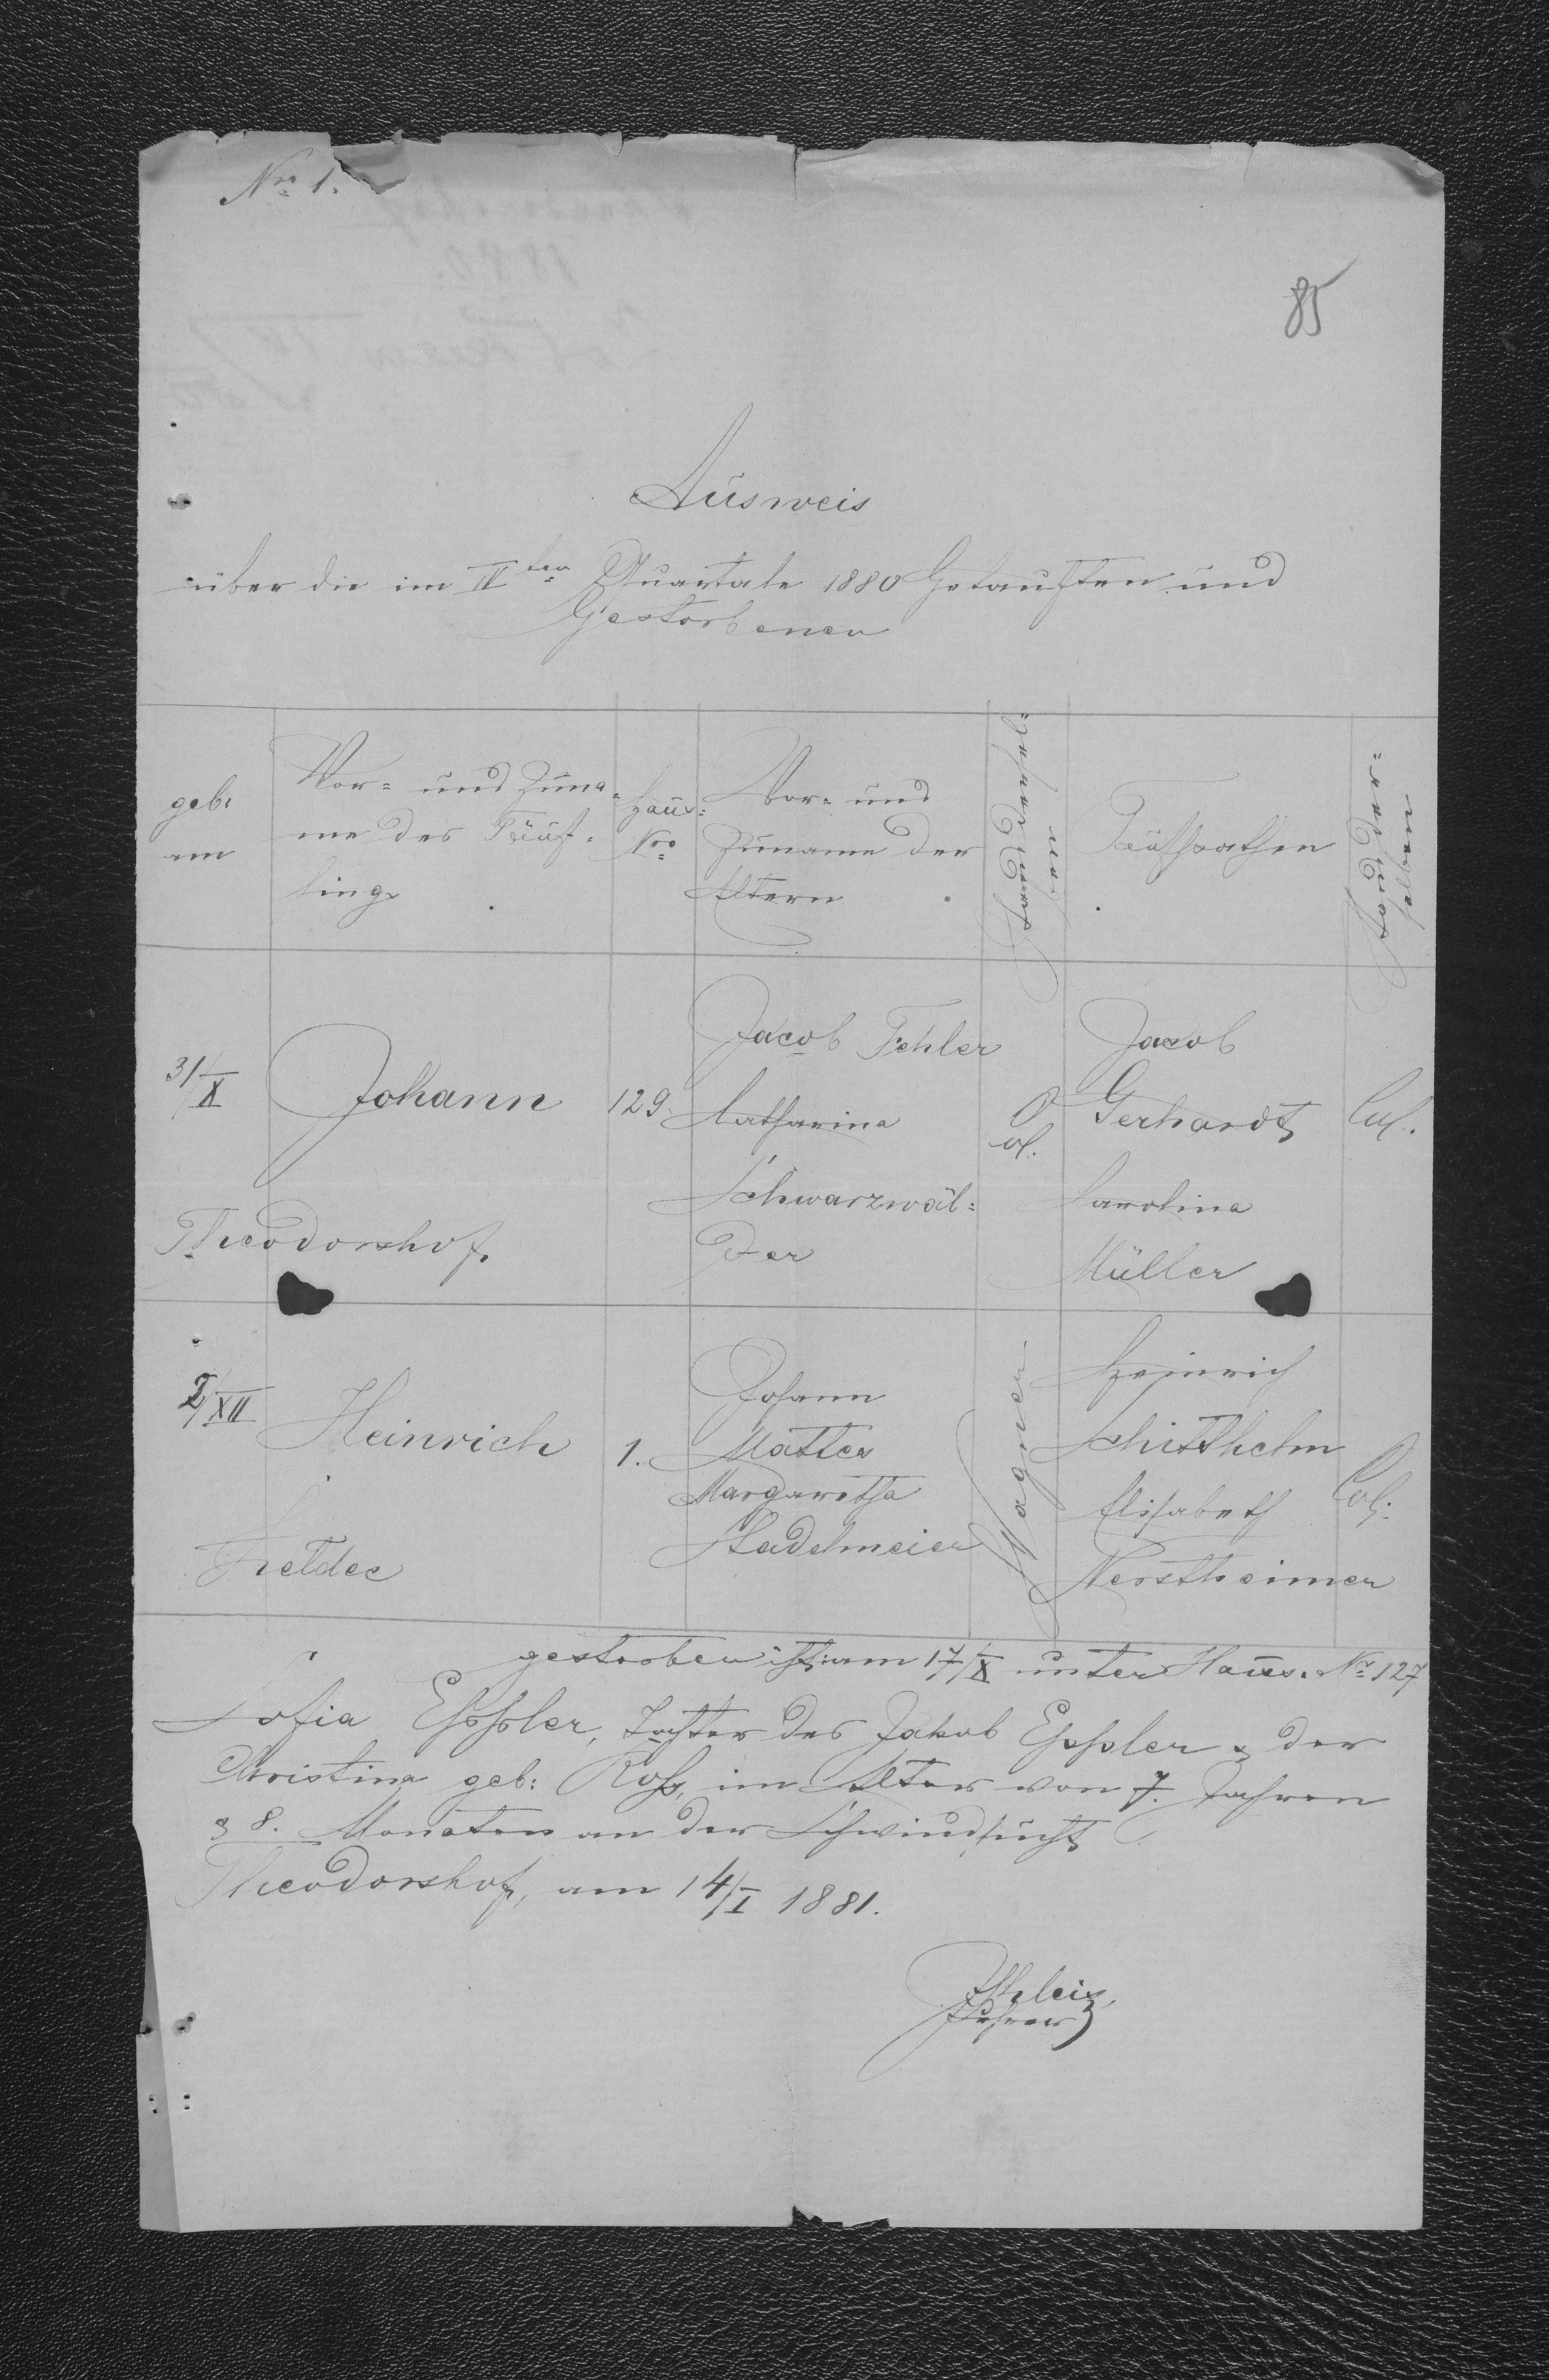 Nro 1.
85
Ausweis
über die im IVten Quartale 1880 Getauften und
Gestorbenen
geb:
am
Vor- und Zuna-
me des Täuf-
lings
Haus-
Nro
Vor- und
Zuname der
Eltern
Stand dersel-
ben
Taufpathen
Stand der-
selben
31/X
Johann
129.
Jacob Fehler
Catharina
Schwarzwäl-
der
Col.
Jacob
Gerhardt
Carolina
Müller
Col.
Theodorshof.
2/XII
Heinrich
1.
Johann
Matter
Margaretha
Stadelmeier
Wagner
Heinrich
Schitthelm
Elisabeth
Nerstheimer
Col.
gestorben ist: am 17/X unter Haus. Nr 127
Sofia Eppler, Tochter des Jakob Eppler & der
Christina geb: Roß, im Alter von 7. Jahren
& 8. Monaten an der Schwindsucht
Theodorshof, am 14/I 1881.
Lehrer